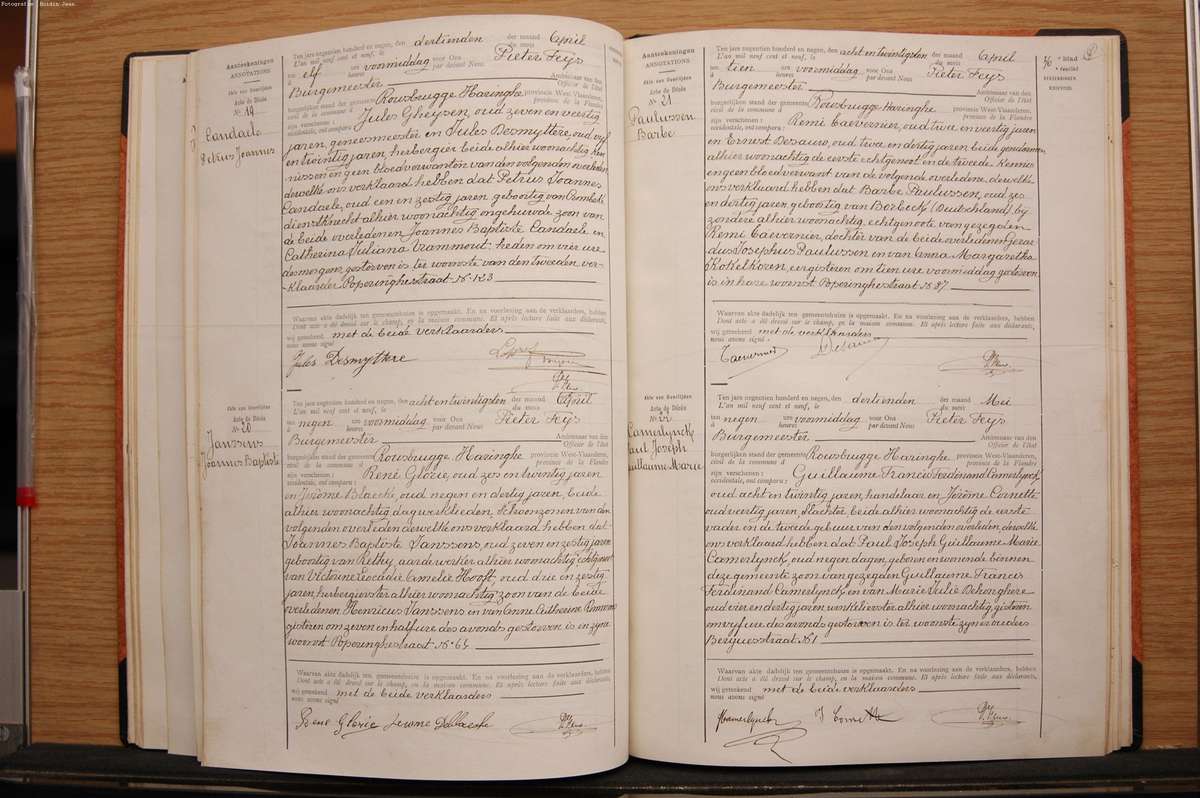 Fotografie : Boidin Jean
Aanteekeningen
ANNOTATIONS
Akte van Overlijden
Acte de Décès
N° 19
Candaele
Petrus Joannes
Ten jare negentien honderd en negen, den dertienden der maand April
L'an mil neuf cent et neuf, le du mois
ten elf ure voormiddag voor Ons Pieter Feys
à heures par devant Nous
Burgemeester Ambtenaar van den
Officier de l'Etat
burgerlijken stand der gemeente Rousbrugge Haringhe provincie West-Vlaanderen,
civil de la commune d province de la Flandre
zijn verschenen : Jules Gheysen, oud zeven en veertig
occidentale, ont comparu :
jaren, geneesmeester en Jules Desmyttere, oud vijf
en twintig jaren, herbergier beide alhier woonachtig Ken-
nissen en geen bloedverwanten van den volgenden overledene
dewelke ons verklaard hebben dat Petrus Joannes
Candaele, oud een en zestig jaren geboortig van Crombeke
dienstknecht alhier woonachtig ongehuwde zoon van
de beide overledenen Joannes Baptiste Candaele en
Catherina Juliana Vrammout: heden om vier ure
des morgens gestorven is ter woonste van den tweeden ver-
klaarder Poperinghestraat N° 123
Waarvan akte dadelijk ten gemeentehuize is opgemaakt. En na voorlezing aan de verklaarders, hebben
Dont acte a été dressé sur le champ, en la maison commune. Et après lecture faite aux déclarants,
wij geteekend met de beide verklaarders
nous avons signé
Jules Desmyttere
P. Feys
Akte van Overlijden
Acte de Décès
N° 20
Janssens
Joannes Baptiste
Ten jare negentien honderd en negen, den acht en twintigsten der maand April
L'an mil neuf cent et neuf, le du mois
ten negen ure voormiddag voor Ons Pieter Feys
à heures par devant Nous
Burgemeester Ambtenaar van den
Officier de l'Etat
burgerlijken stand der gemeente Rousbrugge Haringhe provincie West-Vlaanderen,
civil de la commune d province de la Flandre
zijn verschenen : René Glorie, oud zes en twintig jaren
occidentale, ont comparu :
en Jérôme oud negen en dertig jaren, beide
alhier woonachtig dagwerklieden, Schoonzonen van den
volgenden overleden dewelke ons verklaard hebben dat
Joannes Baptiste Janssens, oud zeven en zestig jaren
geboortig van Rethy, aardewerker alhier woonachtig echtgenoot
van Victorine Leocadie Amelie Hooft, oud drie en zestig
jaren, herbergierster alhier woonachtig, zoon van de beide
overledenen Henricus Janssens en van Anne Catherine
gisteren om zeven en half ure des avonds gestorven is in zyne
woonst Poperinghestraat N° 64
Waarvan akte dadelijk ten gemeentehuize is opgemaakt. En na voorlezing aan de verklaarders, hebben
Dont acte a été dressé sur le champ, en la maison commune. Et après lecture faite aux déclarants,
wij geteekend met de beide verklaarders
nous avons signé
Rene Glorie Jerome
P. Feys
Aanteekeningen
ANNOTATIONS
Akte van Overlijden
Acte de Décès
N° 21
Paulussen
Barbe
Ten jare negentien honderd en negen, den acht en twintigsten der maand April
L'an mil neuf cent et neuf, le du mois
ten tien ure voormiddag voor Ons Pieter Feys
à heures par devant Nous
Burgemeester Ambtenaar van den
Officier de l'Etat
burgerlijken stand der gemeente Rousbrugge-Haringhe provincie West-Vlaanderen,
civil de la commune d province de la Flandre
zijn verschenen : Remi Caevernier, oud twee en veertig jaren
occidentale, ont comparu :
en Ernest Desaure, oud twee en dertig jaren, beide
alhier woonachtig de eerste echtgenoot en de tweede Kennis
en geen bloedverwant van de volgende overledene, dewelke
ons verklaard hebben dat Barbe Paulussen, oud zes
en dertig jaren, geboortig van Borbeck (Deutschland) bij
zondere alhier woonachtig, echtgenoote van gezegden
Remi Caevernier, dochter van de beide overledenen Gerar-
dus Josephus Paulussen en van Anna Margaretha
Kokelkoren, eergisteren om tien ure voormiddag gestorven
is in hare woonst Poperinghestraat N° 87
Waarvan akte dadelijk ten gemeentehuize is opgemaakt. En na voorlezing aan de verklaarders, hebben
Dont acte a été dressé sur le champ, en la maison commune. Et après lecture faite aux déclarants,
wij geteekend met de verklaarders
nous avons signé
Caevernier
P. Feys
Akte van Overlijden
Acte de Décès
N° 22
Camerlynck
Paul Joseph
Guillaume Marie
Ten jare negentien honderd en negen, den dertienden der maand Mei
L'an mil neuf cent et neuf, le du mois
ten negen ure voormiddag voor Ons Pieter Feys
à heures par devant Nous
Burgemeester Ambtenaar van den
Officier de l'Etat
burgerlijken stand der gemeente Rousbrugge Haringhe provincie West-Vlaanderen,
civil de la commune d province de la Flandre
zijn verschenen : Guillaume Francis Ferdinand Camerlynck
occidentale, ont comparu :
oud acht en twintig jaren, handelaar en Jérôme Cornette
oud veertig jaren, slachter beide alhier woonachtig de eerste
vader en de tweede gebuur van den volgenden overleden, dewelke
ons verklaard hebben dat Paul Joseph Guillaume Marie
Camerlynck, oud negen dagen, geboren en wonende binnen
deze gemeente zoon van gezegden Guillaume Francis
Ferdinand Camerlynck en van Marie Julie Dehonghere
oud vier en dertig jaren, winkelierster alhier woonachtig, gisteren
om vijf ure des avonds gestorven is ter woonste zyner ouders
Berguesstraat N° 1
Waarvan akte dadelijk ten gemeentehuize is opgemaakt. En na voorlezing aan de verklaarders, hebben
Dont acte a été dressé sur le champ, en la maison commune. Et après lecture faite aux déclarants,
wij geteekend met de beide verklaarders
nous avons signé
J Cornette
P. Feys